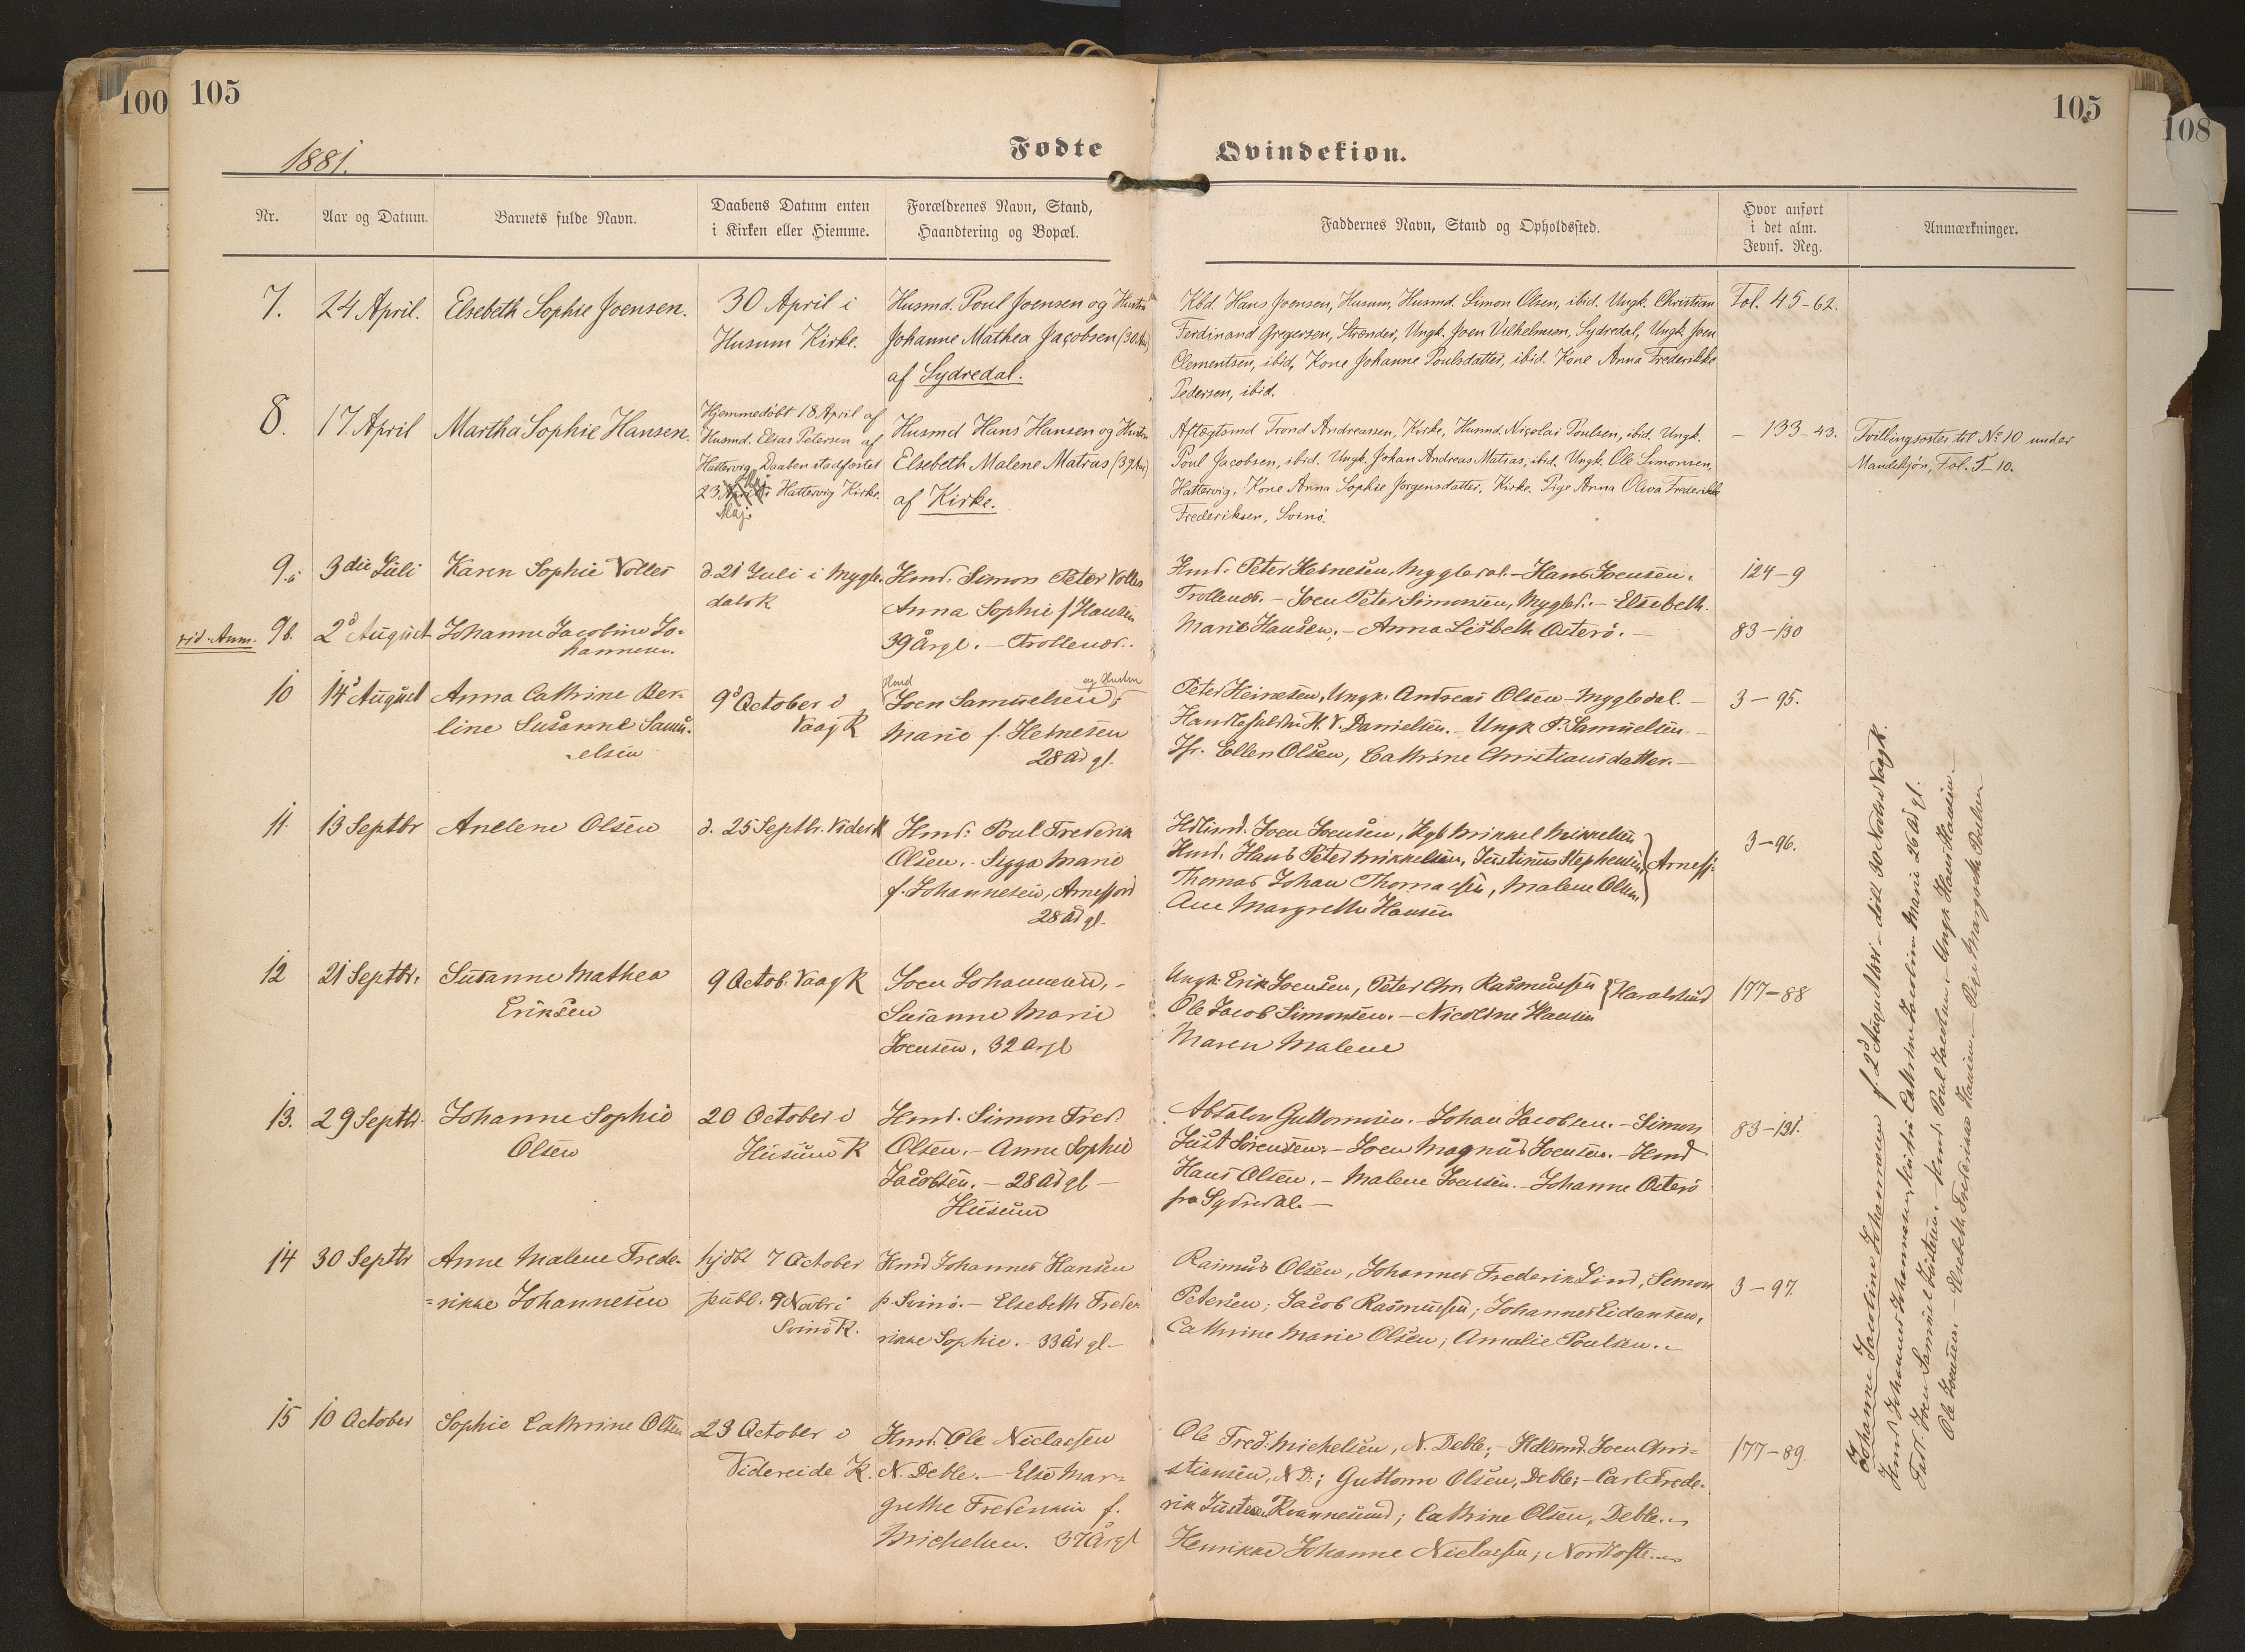 100
105
105
108
1881.
Fødte
Qvindekiøn.
Nr.
Aar og Datum.
Barnets fulde Navn.
Daabens Datum enten
i Kirken eller Hiemme.
Forældrenes Navn, Stand,
Haandtering og Bopæl.
Faddernes Navn, Stand og Opholdssted.
Hvor anført
i det alm.
Jevnf. Reg.
Anmærkninger.
7.
24 April.
Elsebeth Sophie Joensen.
30 April i
Husum Kirke.
Husmd. Poul Joensen og Hustru
Johanne Mathea Jacobsen (30 Aar)
af Sydredal.
Kbd. Hans Joensen, Husum, Husmd. Simon Olsen, ibid. Ungk. Christian
Ferdinand Gregersen, Strænder, Ungk. Joen Vilhelmsen, Sydredal, Ungk. Joen
Clementsen, ibid, Kone Johanne Poulsdatter, ibid. Kone Anna Frederikke
Pedersen, ibid.
Fol. 45-62.
8.
17 April
Martha Sophie Hansen.
Hjemmedøbt 18 April af
Husmd. Elias Petersen af
Hattervig. Daaben stadfæstet
23 April i Hattervig Kirke.
Maj.
Husmd Hans Hansen og Hustru
Elsebeth Malene Matras (39 Aar)
af Kirke.
Aftægtsmd Trond Andreassen, Kirke, Husmd. Nicolai Poulsen, ibid. Ungk.
Poul Jacobsen, ibid. Ungk. Johan Andreas Matras, ibid. Ungk. Ole Simonsen,
Hattervig, Kone Anna Sophie Jørgensdatter, Kirke. Pige Anna Oliva Frederikke
Frederiksen, Svinø.
— 133-43.
Tvillingsøster til No 10 under
Mandekjøn, Fol. 5-10.
9.a
3die Juli
Karen Sophie Volles
d. 21 Juli i Mygle-
dals K
Hmd. Simon Peter Volles
Anna Sophie f Hansen
39 År gl. — Trollenæs.
Hmd. Peter Heinesen, Mygledal. — Hans Joensen,
Trollenæs. — Joen Peter Simonsen, Mygled. — Elsebeth
Marie Hansen. — Anna Lisbeth Østerø. —
124-9
vid. Anm.
9b.
2d August
Johanne Jacobine Jo-
hannesen.
83-130
10
14d August
Anna Cathrine Ber-
line Susanne Samu-
elsen
9d October i
Vaag K
Hmd
og Hustru
Joen Samuelsen,
Marie f. Heinesen
28 Aar gl.
Peter Heinesen, Ungk. Andreas Olsen - Mygledal. —
Handelsfuldm. M. V. Danielsen. — Ungk P. Samuelsen —
Jfr. Ellen Olsen, Cathrine Christiansdatter. —
3-95.
11.
13 Septbr
Anelene Olsen
d. 25 Septbr. Vider K
Hmd. Poul Frederik
Olsen. Sigga Marie
f. Johannesen, Arnefjord
28 Aar gl.
Hdlsmd. Joen Joensen, Kgb Mikkel Mikkelsen
Hmd. Hans Peter Mikkelsen, Justinus Stephensen
Arnefj.
Thomas Johan Thomassen, Malene Olsen
Ane Margrethe Hansen
3-96.
12
21 Septbr.
Susanne Mathea
Eriksen
9 Octob. Vaag K
Joen Johannesen, -
Susanne Marie
Joensen, 32 Aar gl
Ungk. Erik Joensen, Peter Chr. Rasmussen
Haralsund
Ole Jacob Simonsen. — Nicoline Hansen
Maren Malene
177-88
13.
29 Septbr.
Johanne Sophie
Olsen
20 October i
Husum K
Hmd. Simon Fred.
Olsen. — Anne Sophie
Jacobsen. — 28 Aar gl —
Husum
Absalon Guttormsen. — Johan Jacobsen. — Simon
Just Sørensen. — Joen Magnus Joensen. — Hmd
Hans Olsen. — Malene Joensen. — Johanne Østerø
fra Sydredal. —
83-131.
14
30 Septbr
Anne Malene Frede-
=rikke Johannesen
hjdbt 7 October
publ. 9 Novbr i
Svinø K.
Hmd Johannes Hansen
p. Svinø. — Elsebeth Frede-
rikke Sophie. — 33 Aar gl —
Rasmus Olsen, Johannes Frederik Lind, Simon
Petersen; Jacob Rasmussen; Johannes Eidansen,
Cathrine Marie Olsen; Amalie Poulsen. —
3-97.
15
10 October
Sophie Cathrine Olsen
23 October i
Videreide K.
Hmd. Ole Niclassen
N. Deble. — Else Mar-
grethe Frederikke f.
Michelsen. 37 Aar gl
Ole Fred. Michelsen, N. Deble; — Hdlsmd. Joen Chri-
stiansen, N D.; Guttorm Olsen, Deble; — Carl Frede-
rik Justesen Kvannesund; Cathrine Olsen, Deble. —
Henrikke Johanne Niclassen; Nordtofte. —
177-89.
Johanne Jacobine Johannesen f. 2d August 1881 - døbt 30 Novbr i Vaag K.
Hmd Johannes Johannesen, Hustru Cathrine Jacobine Marie 26 Aar gl.
Fadd. Joen Samuel Justesen. — Hmd. Poul Joensen, Ungk Hans Hansen —
Ole Joensen. — Elsebeth Frederikke Hansen — Pige Margrethe Poulsen